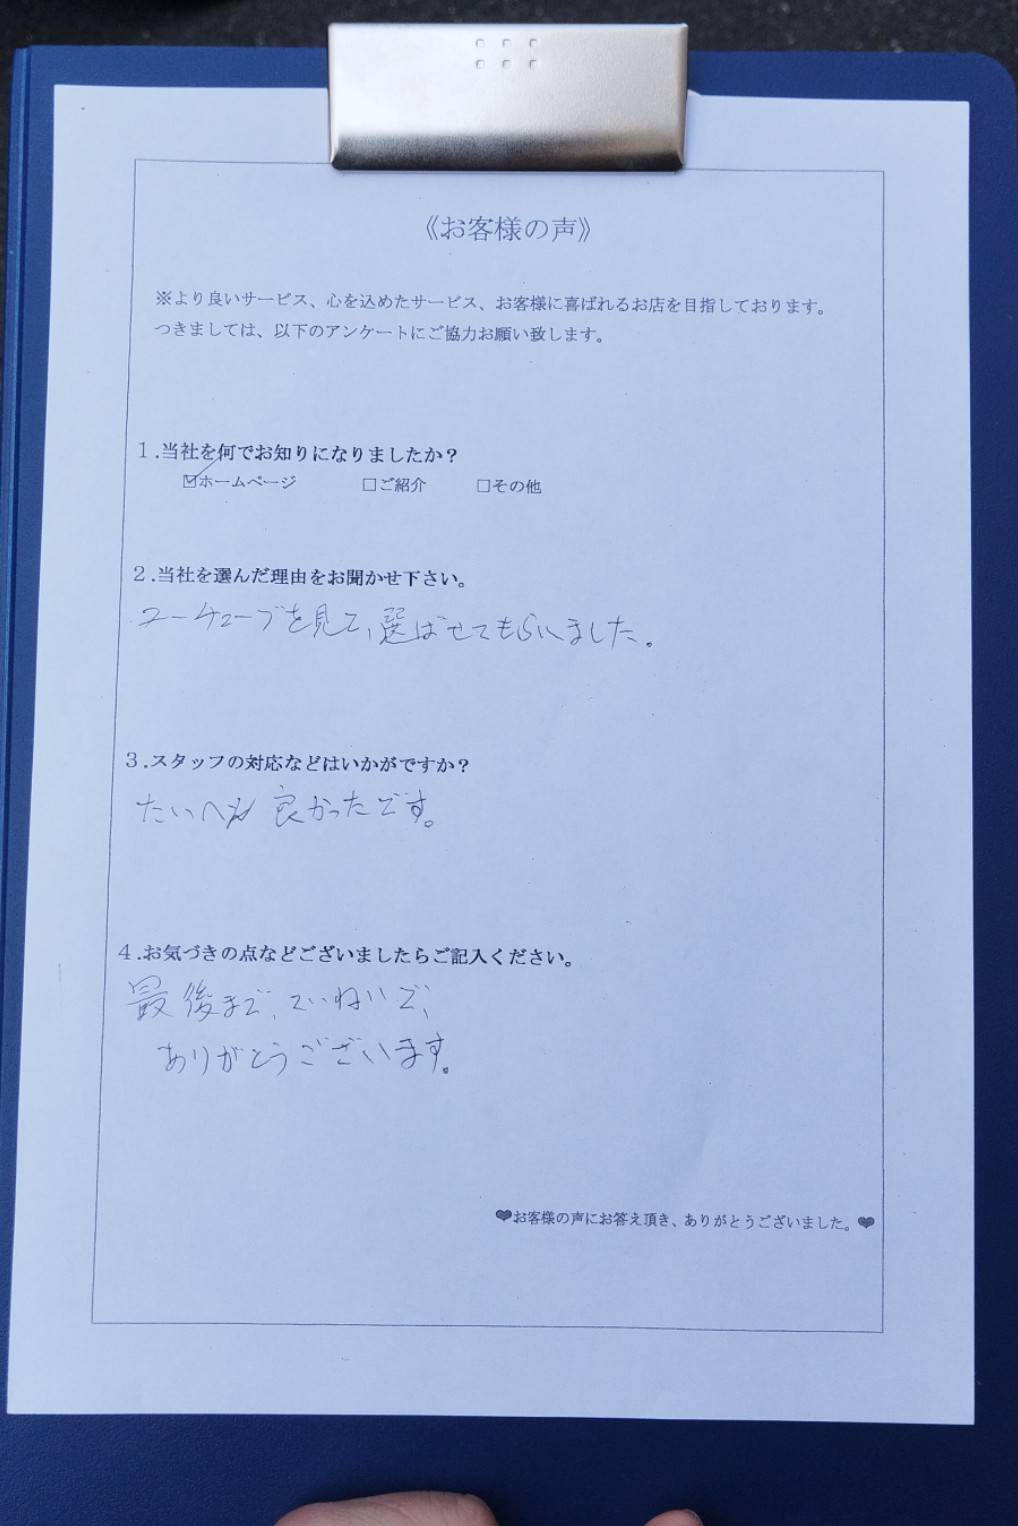 《お客様の声》
※より良いサービス、心を込めたサービス、お客様に喜ばれるお店を目指しております。
つきましては、以下のアンケートにご協力お願い致します。
1.当社を何でお知りになりましたか？
☑ホームページ □ご紹介 □その他
2.当社を選んだ理由をお聞かせ下さい。
ユーチューブを見て、選ばせてもらいました。
3.スタッフの対応などはいかがですか？
たいへん良かったです。
4.お気づきの点などございましたらご記入ください。
最後まで、ていねいで、
ありがとうございます。
❤お客様の声にお答え頂き、ありがとうございました。❤